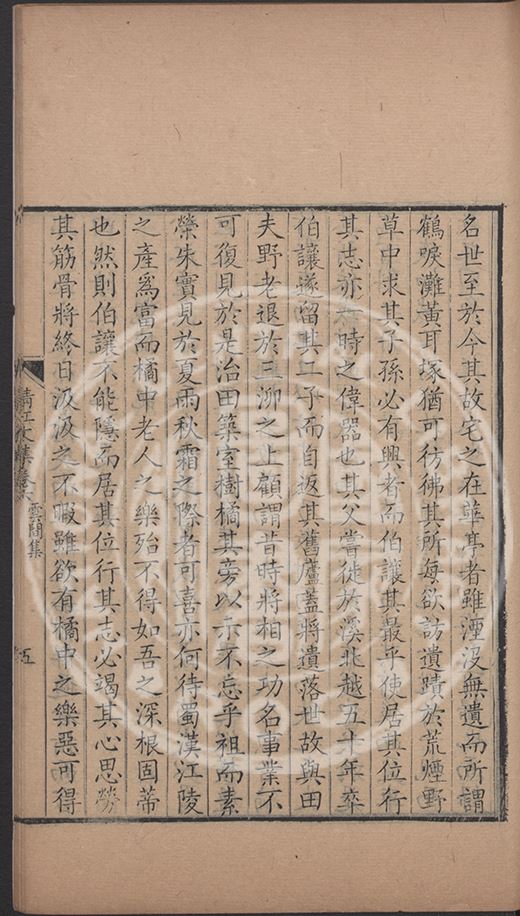 名世至於今其故宅之在華亭者雖湮沒無遺而所謂
鶴唳灘黃耳塚猶可彷彿其所每欲訪遺蹟於荒煙野
草中求其子孫必有興者而伯讓其最乎使居其位行
其志亦一時之偉器也其父嘗徙於溪北越五十年卒
伯讓遂留其二子而自返其舊廬蓋將遺落世故與田
夫野老退於三泖之上顧謂昔時將相之功名事業不
可復見於是治田築室樹橘其旁以示不忘乎祖而素
榮朱實見於夏雨秋霜之際者可喜亦何待蜀漢江陵
之產爲富而橘中老人之樂殆不得如吾之深根固蒂
也然則伯讓不能隱而居其位行其志必竭其心思勞
其筋骨將終日汲汲之不暇雖欲有橘中之樂惡可得
清江貝集卷六 雲間集
五